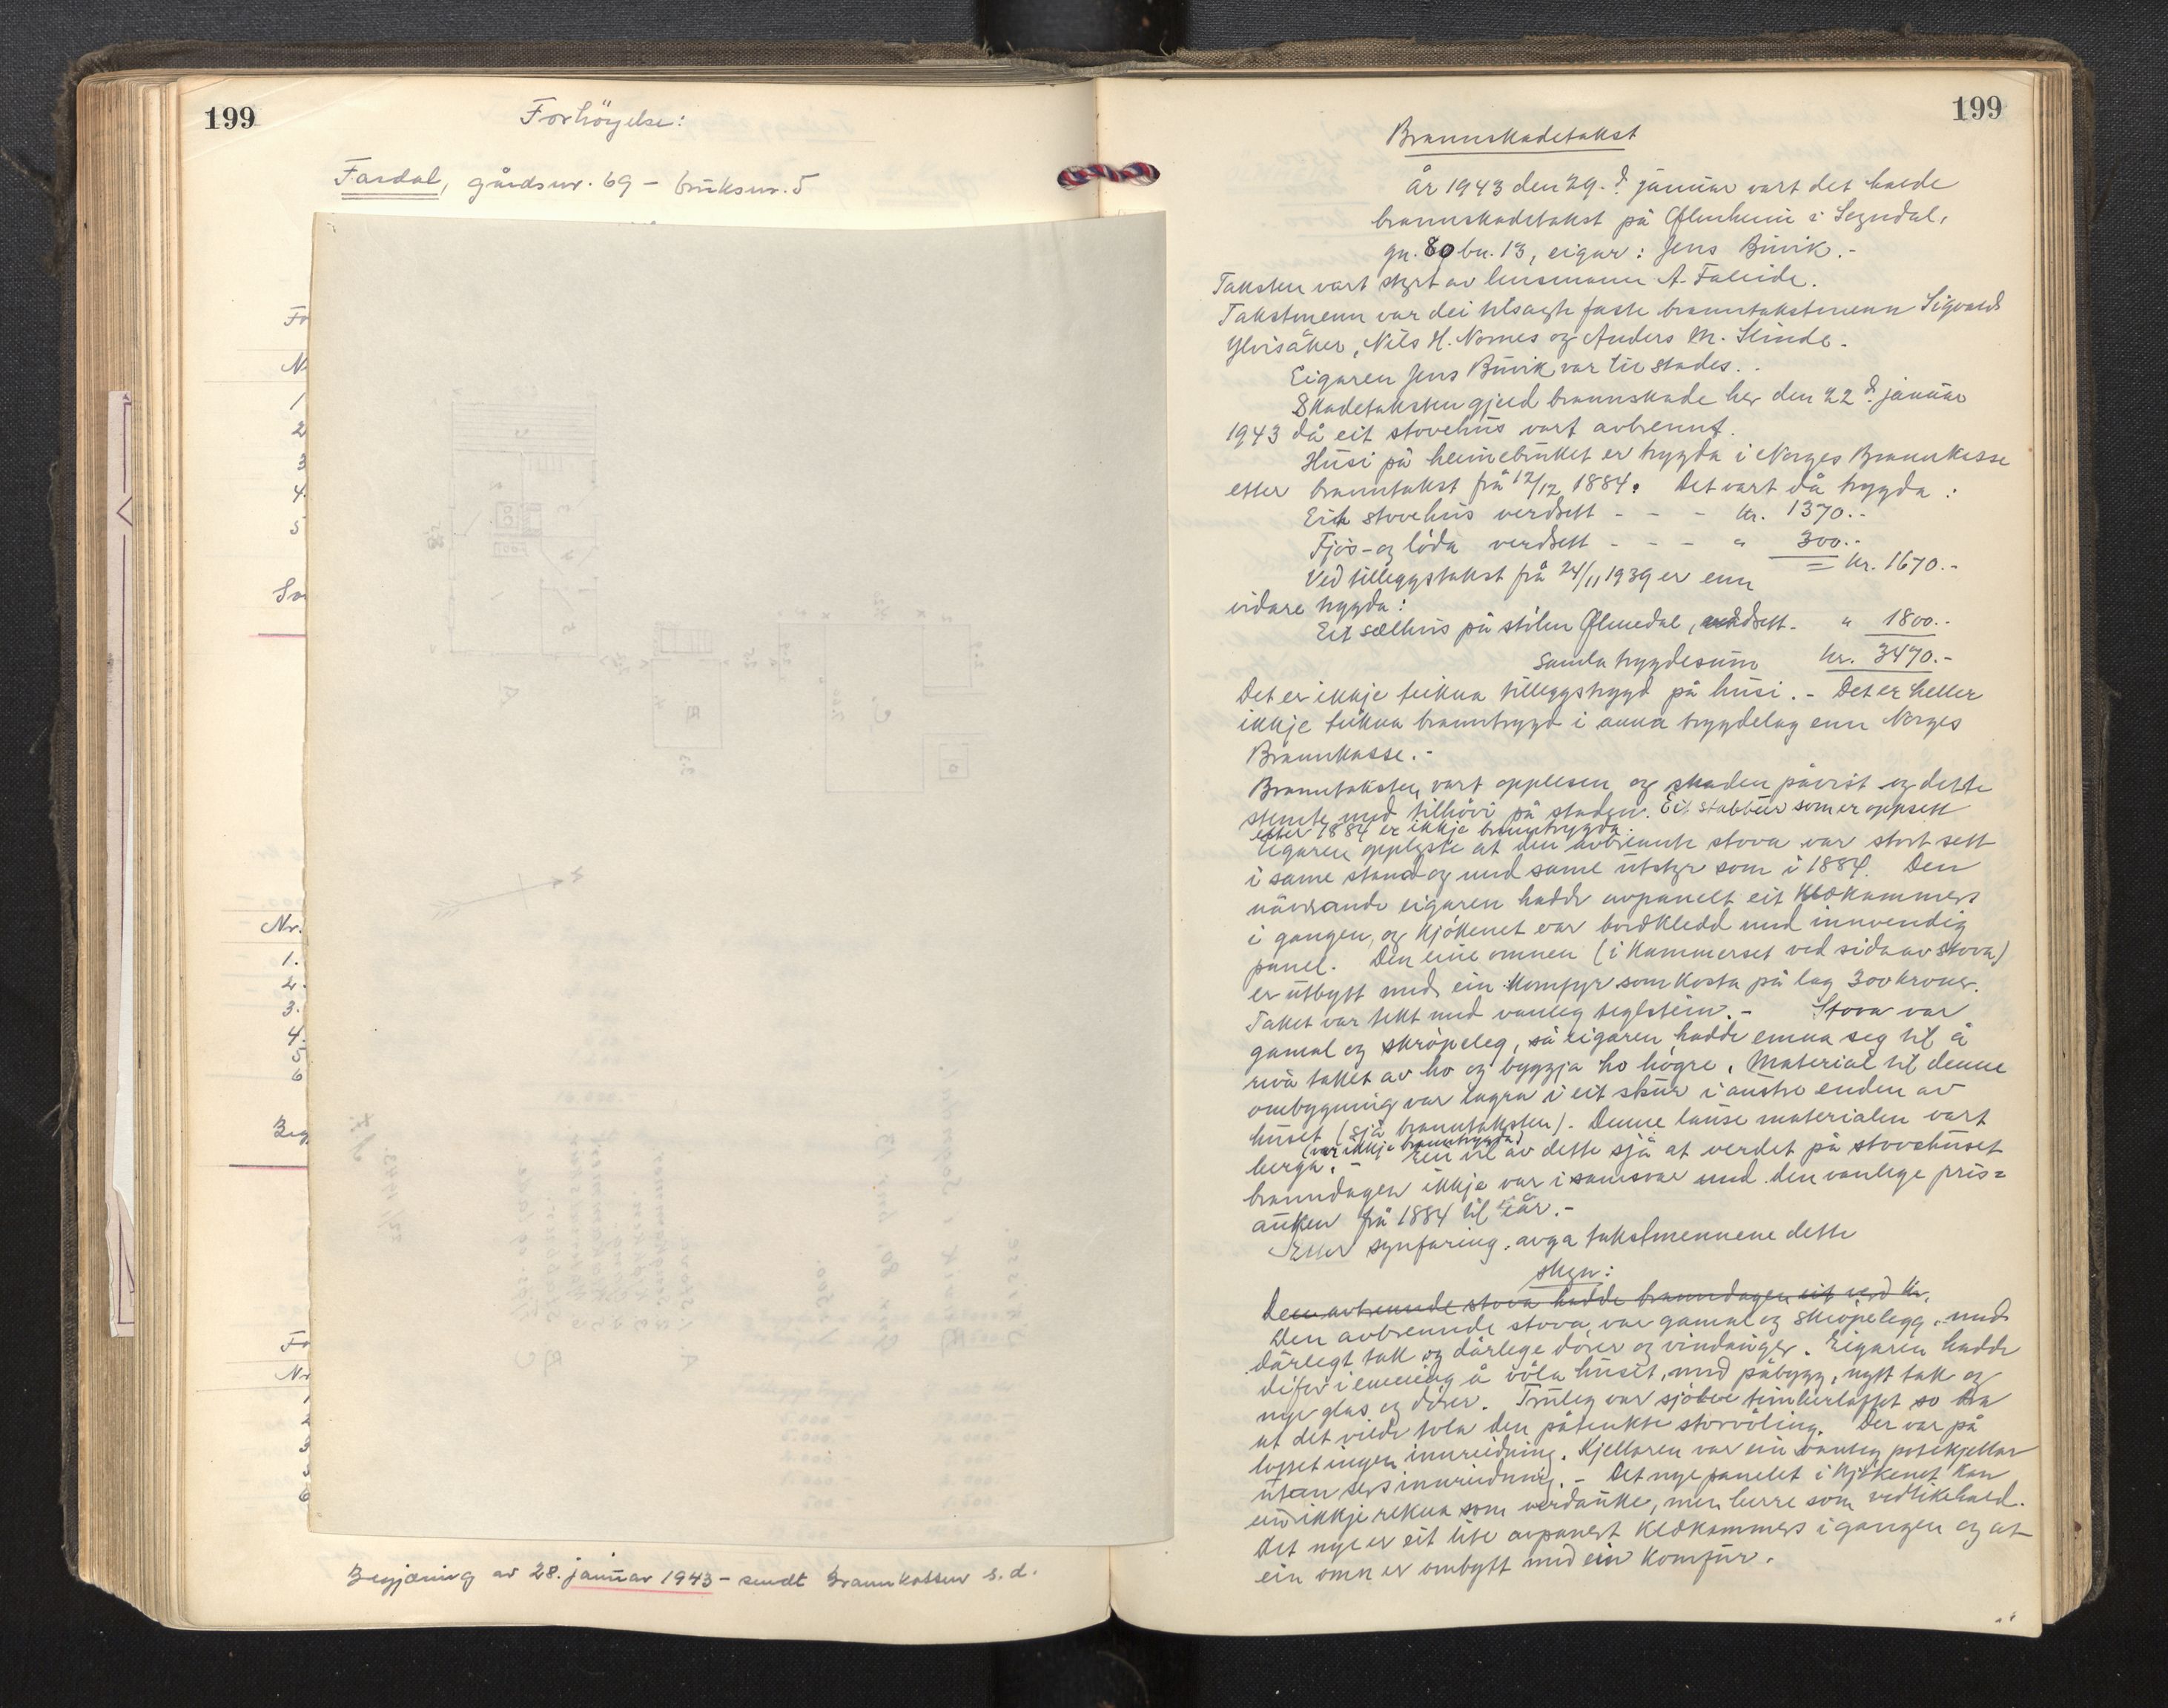 199
Forhöyelse:
Fardal, gårdsnr. 69 – bruksnr. 5
Fo
N
1
2
3
4.
5
Nr.
1.
2.
3.
4.
5
6
Fo
Nr
1
2
3
6
Begjæring av 28. januar 1943 – sendt Brannkassen s.d.
199
Brannskadetakst
År 1943 den 29. d. januar vart det halde
brannskadetakst på Ølmheim i Sogndal,
gn. 80 bn. 13, eigar: Jens Buvik.-
Taksten vart styrt av lensmann A. Faleide.
Takstmenn var dei tilsagte faste branntakstmenn Sigvald
Ylvisåker, Nils H. Nornes og Anders M. Stinde.
Eigaren Jens Buvik var til stades.
Skadetaksten gjeld brannskade her den 22 d. januar
1943 då eit stovehus vart avbrennt.
Husi på heimebruket er trygda i Norges Brannkasse
etter branntakst frå 12/12 1884. Det vart då trygda:
Eit stovehus verdsett - - - kr. 1370.-
Fjös- og löda verdsett - - - " 300.-
= kr. 1670.-
Ved tilleggstakst frå 24/11 1939 er enn
vidare trygda:
Eit selhus på stölen Ølmedal, verdsett - " 1800.-
Samla trygdesum kr. 3470.-
Det er ikkje teikna tilleggstrygd på husi. - Det er heller
ikkje teikna branntrygd i anna trygdelag enn Norges
Brannkasse.-
Branntaksten vart opplesen og skaden påvist og dette
stemte med tilhövi på staden. Eit stabbur som er oppsett
etter 1884 er ikkje branntrygda.
Eigaren opplyste at den avbrennte stova var stort sett
i same stand og med same utstyr som i 1884. Den
nåverande eigaren hadde avpanelt eit kledkammers
i gangen, og kjökenet var bordkledd med innvendig
panel. Den eine omnen (i kammerset ved sida av stova)
er utbytt med ein komfyr som kosta på lag 300 kroner.
Taket var tekt med vanleg teglstein.- Stova var
gamal og skröpeleg, så eigaren hadde emna seg til å
riva taket av ho og byggja ho högre. Material til denne
ombygning var lagra i eit skur i austre enden av
huset (sjå branntaksten). Denne lause materialen vart
(var ikkje branntrygda)
berga. - Ein vil av dette sjå at verdet på stovehuset
branndagen ikkje var i samsvar med den vanlege pris=
auken frå 1884 til i år.-
Etter synfaring avga takstmennene dette
skyn:
Den avbrennde stova hadde branndagen eit verd kr.
Den avbrennde stova var gamal og skröpelegg, med
dårlegt tak og dårlege dörer og vindauger. Eigaren hadde
difor i emning å völa huset, med påbygg, nytt tak og
nye glas og dörer. Truleg var sjölve timberlaftet so bra
at det vilde tola den påtenkte storvöling. Der var på
loftet ingen innreidning. Kjellaren var ein vanleg potetkjellar
utan sers innreidning. - Det nye panelet i kjökenet kan
ein ikkje rekna som verdauke, men berre som vedlikehald.
Det nye er eit lite avpanert kledkammers i gangen og at
ein omn er ombytt med ein komfur.